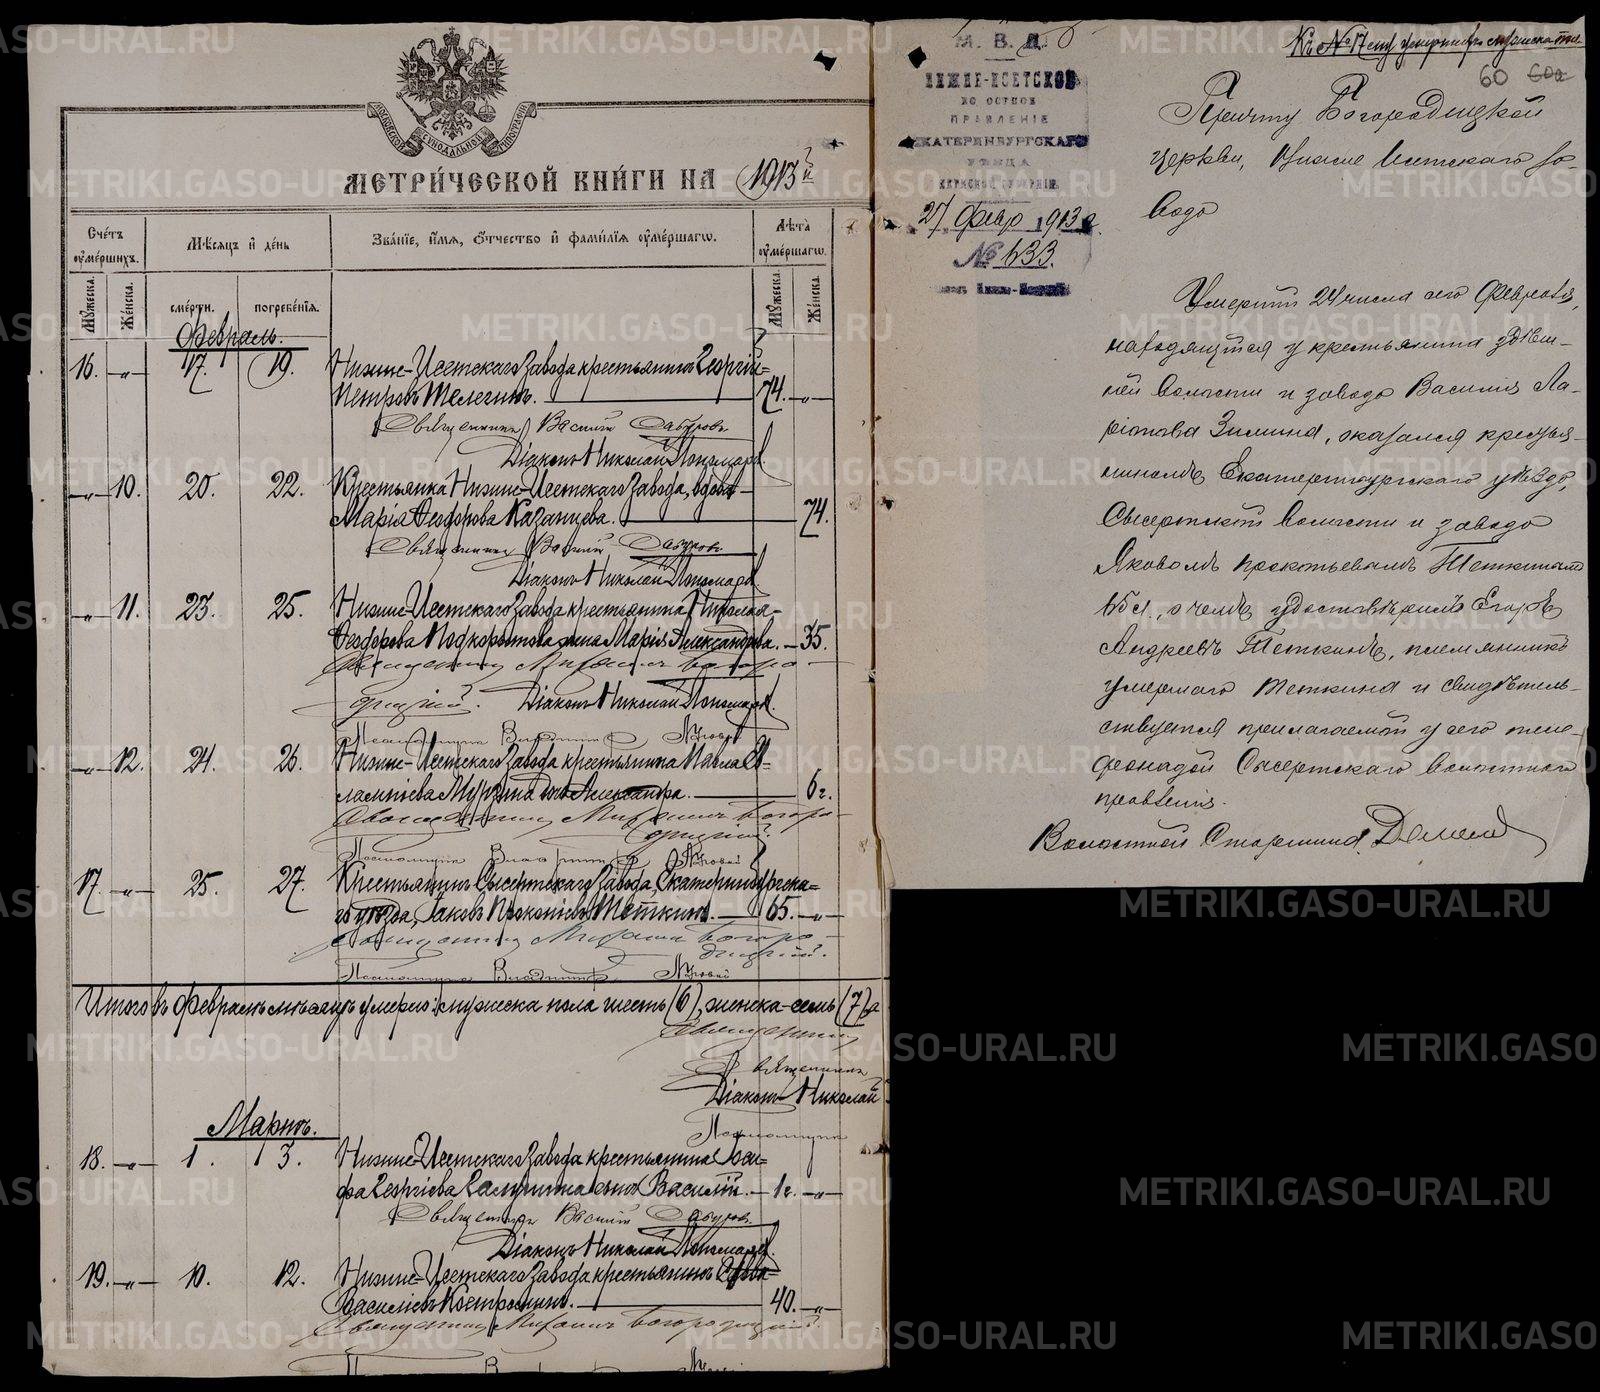 МЕТРИЧЕСКОЙ КНИГИ НА 1913 й
Счетъ умершихъ.
Мужеска.
Женска.
Мѣсяцъ и день
смерти.
погребенія.
Званіе, имя, отчество и фамилія умершаго.
Лѣта умершаго.
Мужеска.
Женска.
Февраль.
16. -„- 17. 19. Нижне-Исетскаго завода крестьянинъ Георгій
Петровъ Телегинъ. 74. -„-
Священникъ Василій Сабуровъ
Діаконъ Николай Пономарев
-„- 10. 20. 22. Крестьянка Нижне-Исетскаго завода, вдова
Марія Ѳеодорова Казанцева. 74.
Священникъ Василій Сабуровъ
Діаконъ Николай Пономарев
-„- 11. 23. 25. Нижне-Исетскаго завода крестьянина Николая
Ѳеодорова Подкорытова жена Марія Александрова. 35.
Священникъ Михаилъ Богоро-
дицкій. Діаконъ Николай Пономарев.
Псаломщикъ Владиміръ
-„- 12. 24. 26. Нижне-Исетскаго завода крестьянина Павла Ев-
лампіева Мурзина дочь Александра. 6 г.
Священникъ Михаилъ Богоро-
дицкій.
Псаломщикъ Владиміръ
17. -„- 25. 27. Крестьянинъ Сысертскаго завода, Екатеринбургска-
го уѣзда, Іаковъ Прокопіевъ Теткинъ. 65. -„-
Священникъ Михаилъ Богоро-
дицкій.
Псаломщикъ Владиміръ
Итого въ Февралѣ мѣсяцѣ умерло: мужеска пола шесть (6), женска - семь (7), а
Священникъ
Священникъ
Діаконъ Николай
Псаломщикъ
Мартъ.
18. -„- 1. 3. Нижне-Исетскаго завода крестьянина Іоси-
фа Георгіева Галушина сынъ Василій. 1 г. -„-
Священникъ Василій Сабуровъ
Діаконъ Николай Пономарев.
19. -„- 10. 12. Нижне-Исетскаго завода крестьянинъ Савва
Василіевъ Костромин. 40. -„-
Священникъ Михаилъ Богородицкій.
М. В. Д.
НИЖНЕ-ИСЕТСКОЕ
ВОЛОСТНОЕ
ПРАВЛЕНІЕ
ЕКАТЕРИНБУРГСКАГО
УѢЗДА
ПЕРМСКОЙ ГУБЕРНІИ.
27 Февр 1913 г.
№ 633.
Къ № 17 му умершихъ мужска пола.
60 60а
Причту Богородицкой
церкви, Нижне Исетскаго за-
вода
Умершій 24 числа сего Февраля,
находящійся у крестьянина здѣш-
ней волости и завода Василія Ла-
ріонова Зимина, оказался крестья-
ниномъ Екатеринбургскаго уѣзда,
Сысертской волости и завода
Яковомъ Прокопьевымъ Теткинымъ
65 л., о чемъ удостовѣрилъ Егоръ
Андреевъ Теткинъ, племянникъ
умершаго Теткина и свидѣтель-
ствуется прилагаемой у сего теле-
фонадой Сысертскаго волостного
правленія.
Волостной Старшина
METRIKI.GASO-URAL.RU